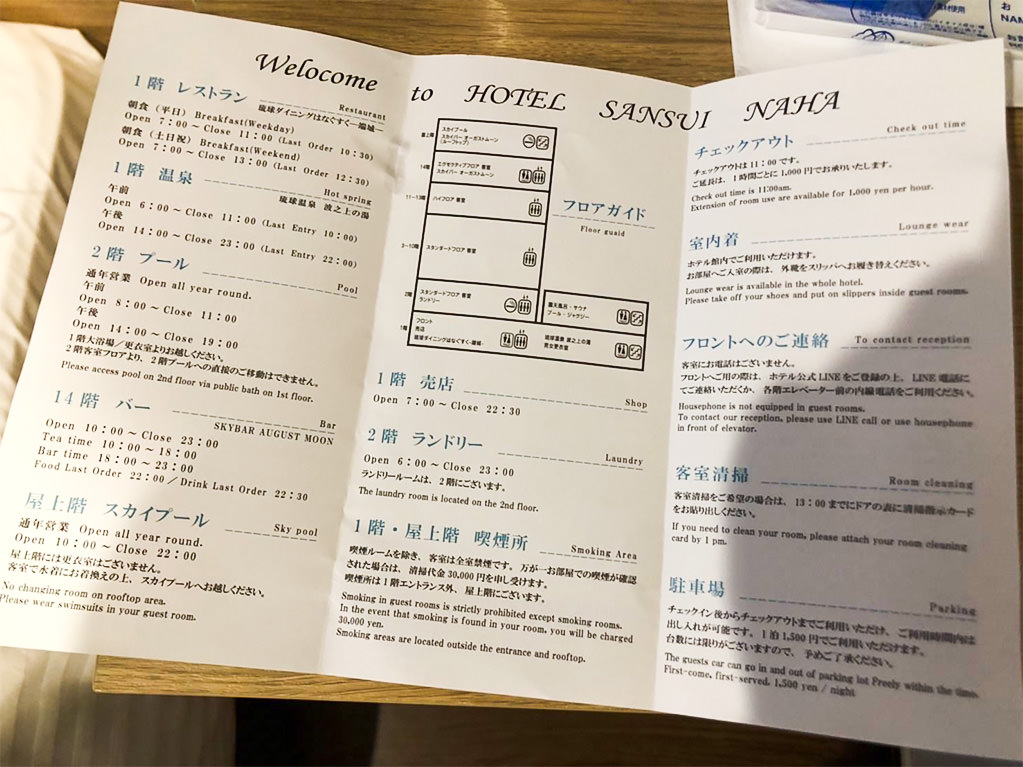 Welocome to HOTEL SANSUI NAHA
1階 レストラン Restaurant
琉球ダイニングはなぐすく―端城―
朝食（平日）Breakfast(Weekday)
Open 7:00～Close 11:00 (Last Order 10:30)
朝食（土日祝）Breakfast(Weekend)
Open 7:00～Close 13:00 (Last Order 12:30)
1階 温泉 Hot spring
琉球温泉 波之上の湯
午前
Open 6:00～Close 11:00 (Last Entry 10:00)
午後
Open 14:00～Close 23:00 (Last Entry 22:00)
2階 プール Pool
通年営業 Open all year round.
午前
Open 8:00～Close 11:00
午後
Open 14:00～Close 19:00
1階大浴場／更衣室よりお越しください。
2階客室フロアより、2階プールへの直接のご移動はできません。
Please access pool on 2nd floor via public bath on 1st floor.
14階 バー Bar
SKYBAR AUGUST MOON
Open 10:00～Close 23:00
Tea time 10:00～18:00
Bar time 18:00～23:00
Food Last Order 22:00／Drink Last Order 22:30
屋上階 スカイプール Sky pool
通年営業 Open all year round.
Open 10:00～Close 22:00
屋上階には更衣室はございません。
客室で水着にお着換えの上、スカイプールへお越しください。
No changing room on rooftop area.
Please wear swimsuits in your guest room.
フロアガイド
Floor guaid
屋上階
スカイプール
スカイバー オーガストムーン
(ルーフトップ)
14階
エグゼクティブフロア 客室
スカイバー オーガストムーン
11～13階
ハイフロア 客室
3～10階
スタンダードフロア 客室
2階
スタンダードフロア 客室
ランドリー
露天風呂・サウナ
プール・ジャグジー
1階
フロント
売店
琉球ダイニングはなぐすく-端城-
琉球温泉 波之上の湯
男女更衣室
1階 売店 Shop
Open 7:00～Close 22:30
2階 ランドリー Laundry
Open 6:00～Close 23:00
ランドリールームは、2階にございます。
The laundry room is located on the 2nd floor.
1階・屋上階 喫煙所 Smoking Area
喫煙ルームを除き、客室は全室禁煙です。万が一お部屋での喫煙が確認
された場合は、清掃代金30,000円を申し受けます。
喫煙所は1階エントランス外、屋上階にございます。
Smoking in guest rooms is strictly prohibited except smoking rooms.
In the event that smoking is found in your room, you will be charged
30,000 yen.
Smoking areas are located outside the entrance and rooftop.
チェックアウト Check out time
チェックアウトは11:00です。
ご延長は、1時間ごとに1,000円でお承りいたします。
Check out time is 11:00am.
Extension of room use are available for 1,000 yen per hour.
室内着 Lounge wear
ホテル館内でご利用いただけます。
お部屋へご入室の際は、外靴をスリッパへお履き替えください。
Lounge wear is available in the whole hotel.
Please take off your shoes and put on slippers inside guest rooms.
フロントへのご連絡 To contact reception
客室にお電話はございません。
フロントへご用の際は、ホテル公式LINEをご登録の上、LINE電話に
てご連絡いただくか、各階エレベーター前の内線電話をご利用ください。
Housephone is not equipped in guest rooms.
To contact our reception, please use LINE call or use housephone
in front of elevator.
客室清掃 Room cleaning
客室清掃をご希望の場合は、13:00までにドアの表に清掃指示カード
をお貼り出しください。
If you need to clean your room, please attach your room cleaning
card by 1 pm.
駐車場 Parking
チェックイン後からチェックアウトまでご利用いただけ、ご利用時間内は
出し入れが可能です。1泊1,500円でご利用いただけます。
台数には限りがございますので、予めご了承ください。
The guests car can go in and out of parking lot Freely within the time.
First-come, first-served. 1,500 yen / night